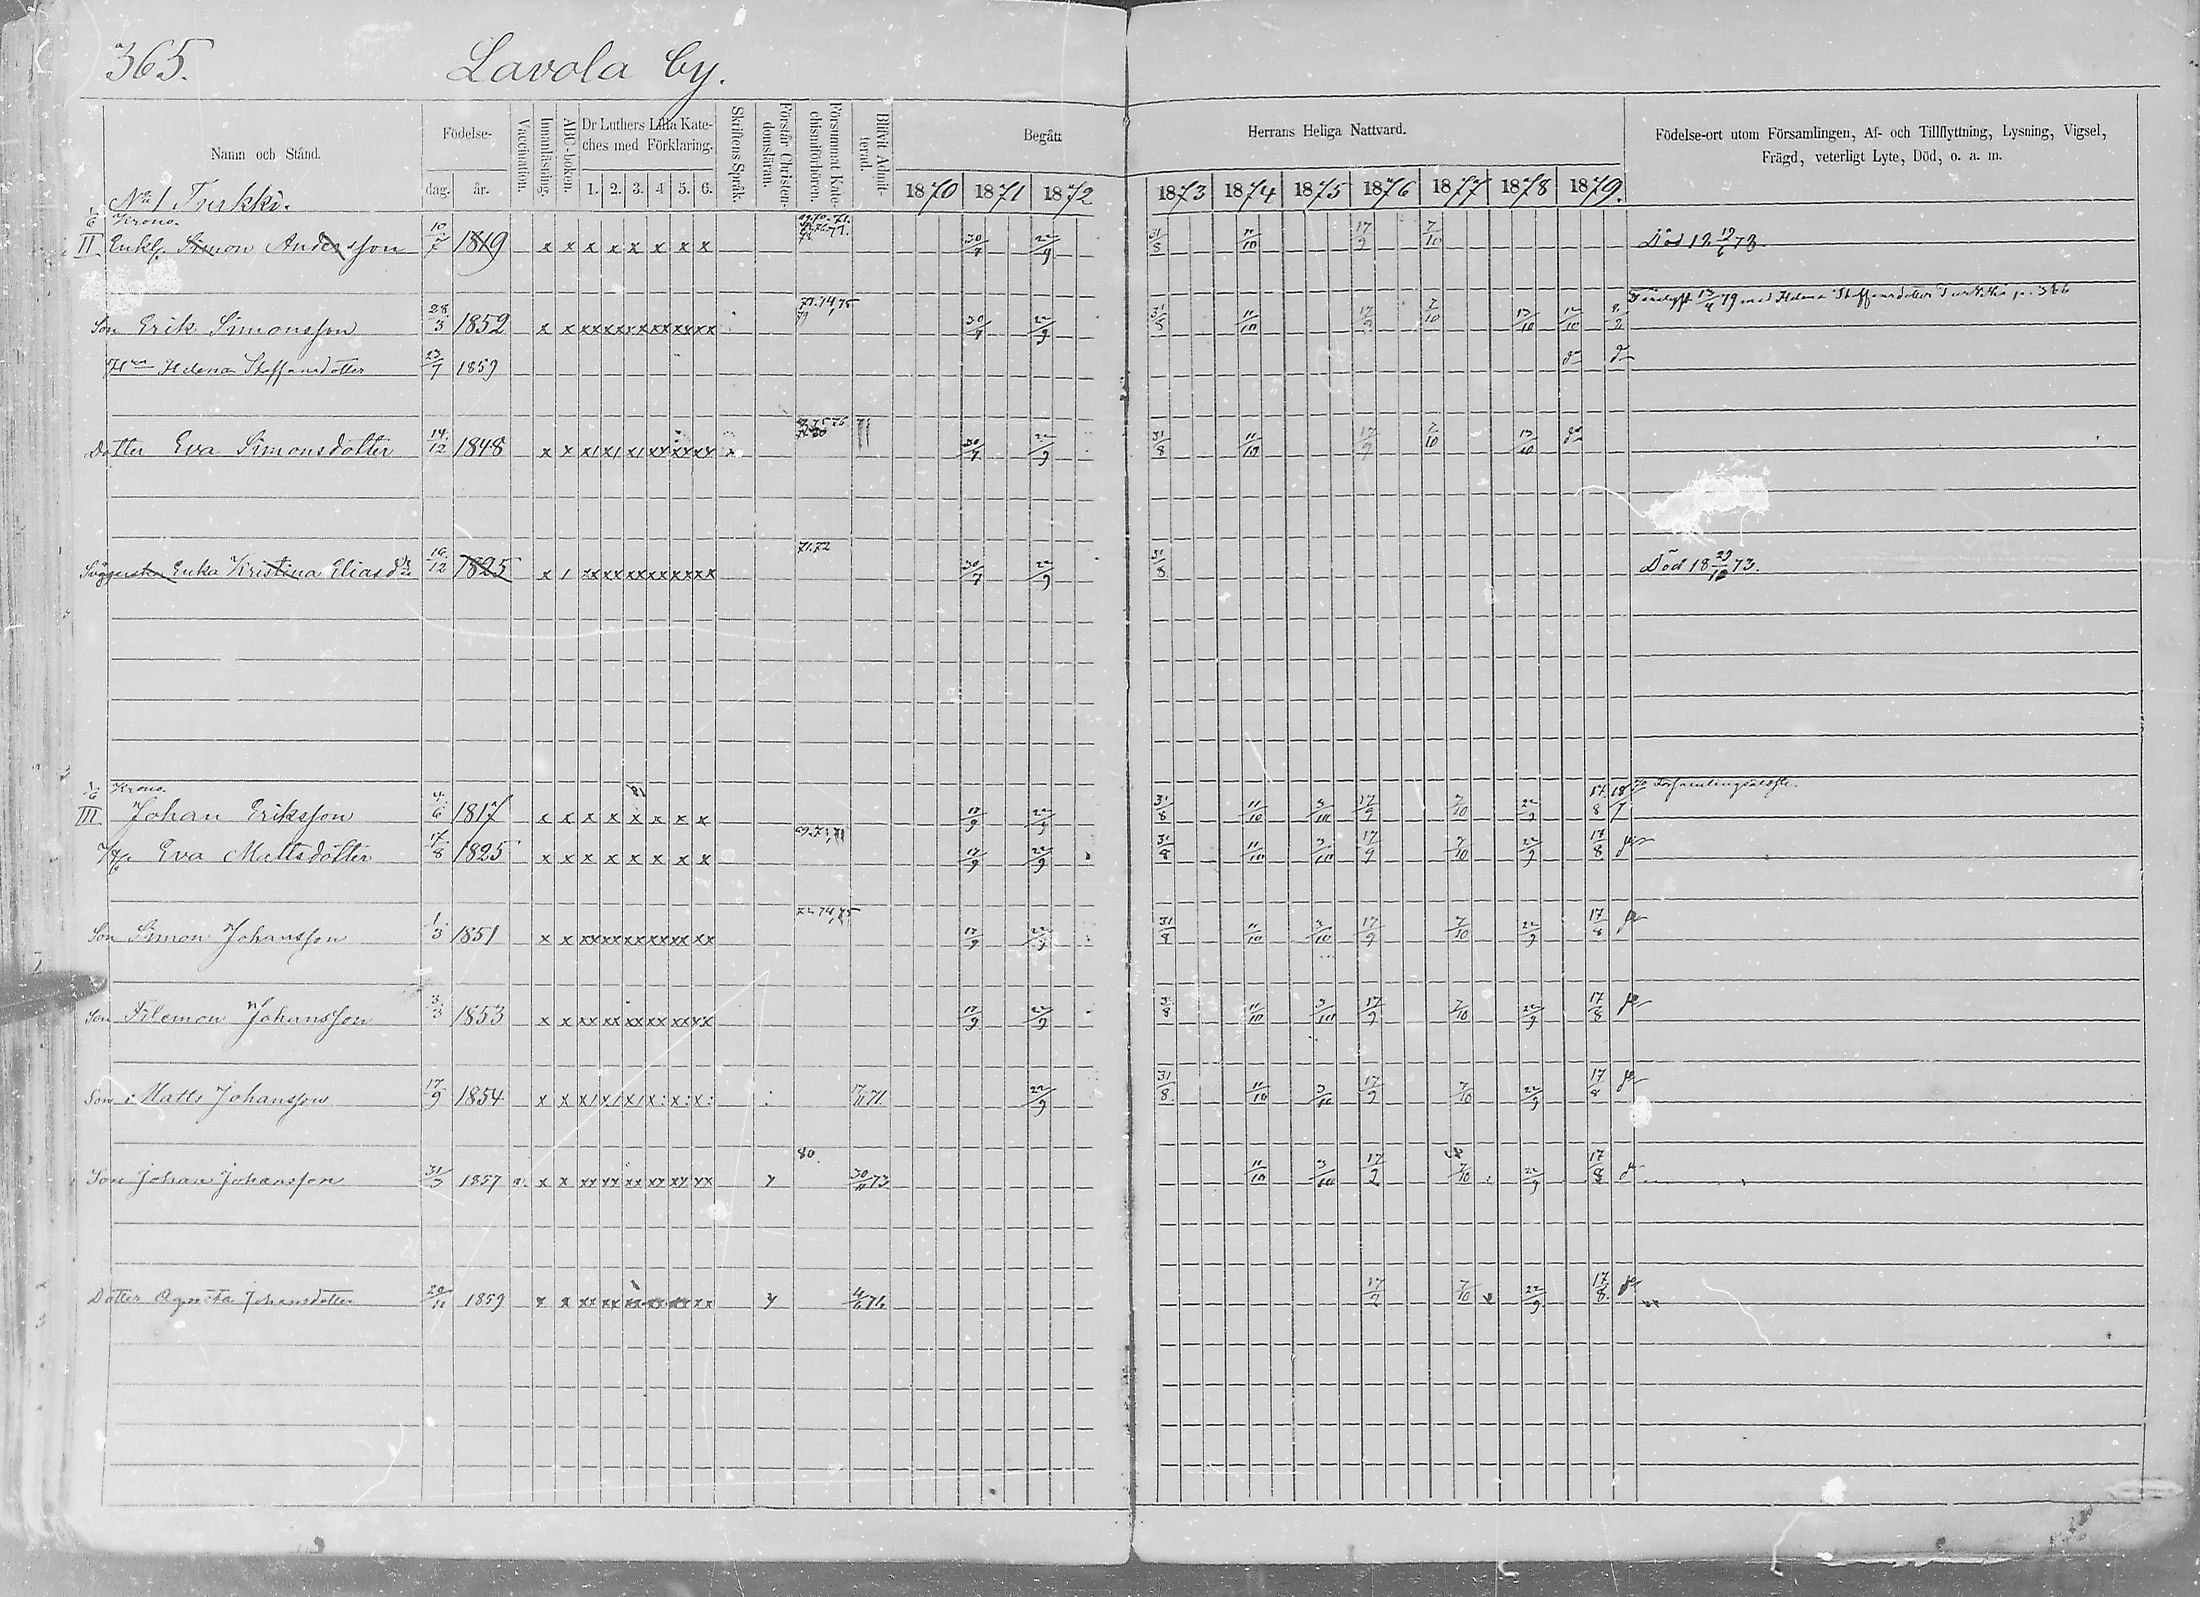 365. Lavola by.
Namn och Stånd. Födelse- dag. år. Vaccination. Innanläsning. ABC-boken. Dr Luthers Lilla Kateches med Förklaring. 1. 2. 3. 4. 5. 6. Skriftens Språk. Förstår Christendomsläran. Försummat Katechismiförhören. Blifvit Admitterad. Begått 1870 1871 1872 Herrans Heliga Nattvard. 1873 1874 1875 1876 1877 1878 1879. Födelse-ort utom Församlingen, Af- och Tillflyttning, Lysning, Vigsel, Frägd, veterligt Lyte, Död, o. a. m.
No 1 Turkki.
Krono
II Enkl. Simon Andersson 10/7 1819 x x x x x x x x 30/7 22/9 31/8 11/10 17/9 7/10 Död 18
Son Erik Simonsson 28/3 1852 x x xx xx xx xx xx xx 71.74,75 30/7 22/9 31/8 11/10 17/9 7/10 13/10 12/10 med Helena Staffansdotter Turkki p. 366
Hu Helena Staffansdotter 23/7 1859
Dotter Eva Simonsdotter 14/12 1848 x x x/ x/ x/ xx xx xx 30/7 22/9 31/8 11/10 17/9 7/10 13/10
Enka Kristina Eliasd 16/12 1825 x / xx xx xx xx xx xx 71.72 30/7 22/9 31/8 Död 18 29/10 73.
Krono
III Johan Eriksson 4/6 1817 x x x x x x x x 17/9 22/9 31/8 11/10 3/10 17/9 7/10 22/9 17/8 18/7
Eva Mattsdotter 17/8 1825 x x x x x x x x 17/9 22/9 31/8 11/10 3/10 17/9 7/10 22/9 17/8
Son Simon Johansson 1/3 1851 x x xx xx xx xx xx xx 72.74,75 17/9 22/9 31/8 11/10 3/10 17/9 7/10 22/9 17/8
Son Filemon Johansson 3/3 1853 x x xx xx xx xx xx xx 17/9 22/9 31/8 11/10 3/10 17/9 7/10 22/9 17/8
Son Matts Johansson 17/9 1854 x x x/ x/ x/ x: x: x: 17/11 71 22/9 31/8 11/10 3/10 17/9 7/10 22/9 17/8
Son Johan Johansson 31/3 1857 x x xx xx xx xx xx xx 80. 30/11 73 11/10 3/10 17/9 7/10 22/9 17/8
Dotter Agneta Johansdotter 20/11 1859 x x xx xx xx xx xx xx 76 17/9 7/10 22/9 17/8